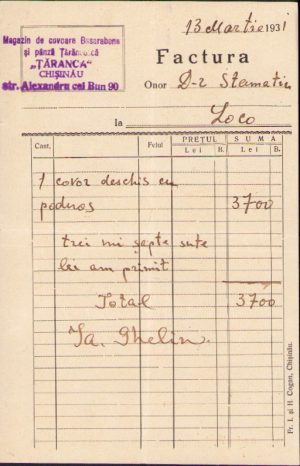 13 Martie 1931
Magazin de covoare Basarabene
și pânză Țărănească
„ȚĂRANCA”
CHIȘINĂU
str. Alexandru cel Bun 90
Factura
Onor D-r Stamatin
la Loco
Cant. Felul PREȚUL SUMA
Lei B. Lei B.
1 covor deschis cu
podnos 3700
trei mi șapte sute
lei am primit
Total 3700
Fr. I. și H. Cogan, Chișinău.